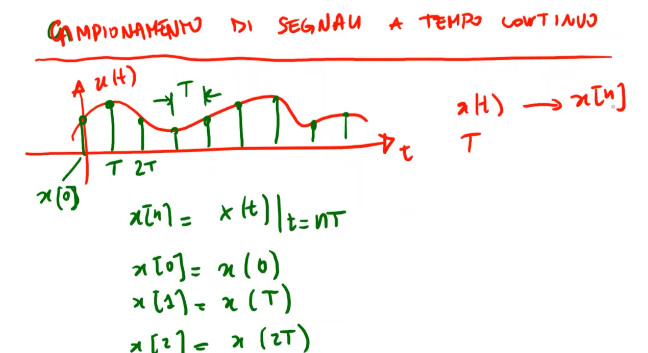 CAMPIONAMENTO DI SEGNALI A TEMPO CONTINUO
x(t)
T
x(t) → x[n]
T
t
T 2T
x[0]
x[n] = x(t)|t=nT
x[0] = x(0)
x[1] = x(T)
x[2] = x(2T)